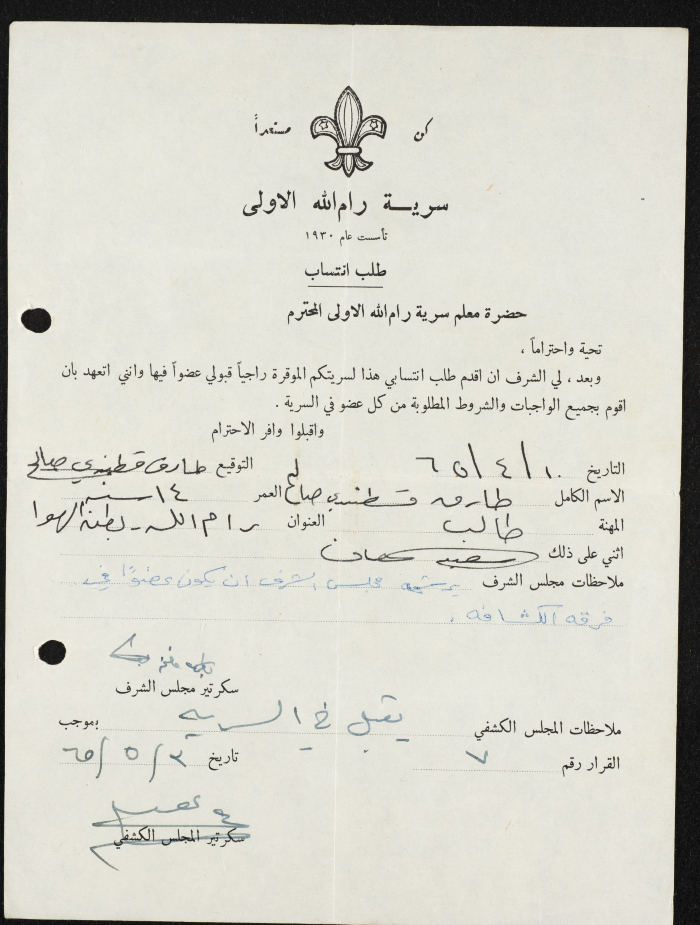 كن مستعداً
سرية رام الله الاولى
تأسست عام ١٩٣٠
طلب انتساب
حضرة معلم سرية رام الله الاولى المحترم
تحية واحتراماً ،
وبعد ، لي الشرف ان اقدم طلب انتسابي هذا لسريتكم الموقرة راجياً قبولي عضواً فيها وانني اتعهد بان
اقوم بجميع الواجبات والشروط المطلوبة من كل عضو في السرية .
واقبلوا وافر الاحترام
التاريخ ١٠/٤/٦٥ التوقيع طارق قسطندي صالح
الاسم الكامل طارق قسطندي صالح العمر ١٤ سنه
المهنة طالب العنوان رام الله - بطن الهوا
اثني على ذلك
ملاحظات مجلس الشرف يرشحه مجلس الشرف ان يكون عضوًا في
فرقه الكشافه .
سكرتير مجلس الشرف
ملاحظات المجلس الكشفي يقبل في السريه بموجب
القرار رقم ٧ تاريخ ٣/٥/٦٥
سكرتير المجلس الكشفي